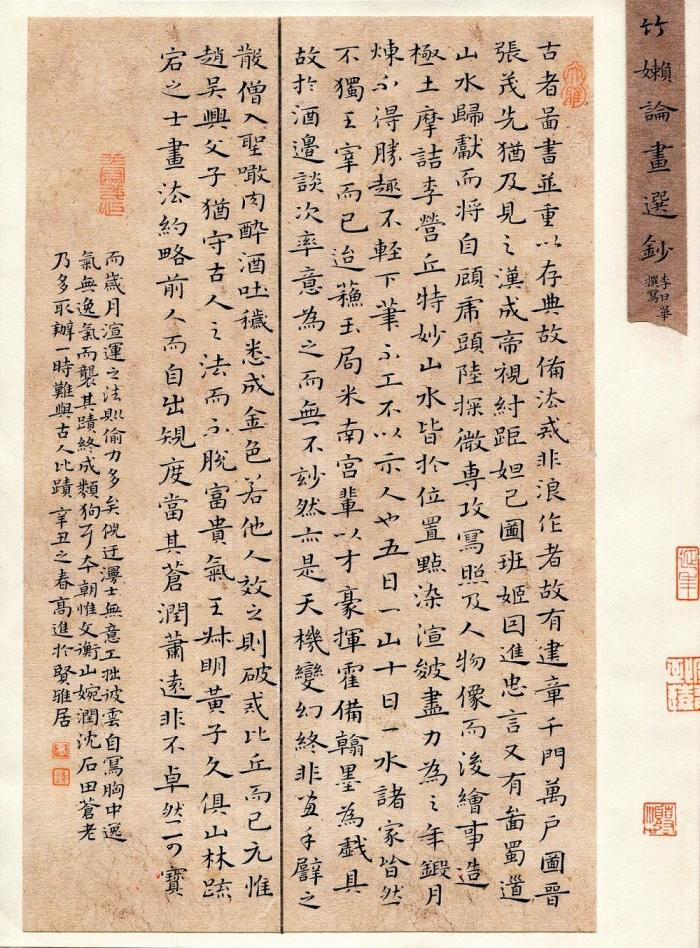 竹嬾論畫選鈔
李日華
撰寫
古者啚書並重以存典故備法戒非浪作者故有建章千門萬戶圖晉
張茂先猶及見之漢成帝視紂距妲己圖班姬因進忠言又有啚蜀道
山水歸獻而將自顧虎頭陸探微専攻寫照及人物像而後繪事造
極王摩詰李營丘特妙山水皆於位置點染渲皴盡力為之年鍛月
煉不得勝趣不輕下筆不工不以示人也五日一山十日一水諸家皆然
不獨王宰而已迨蘓玉局米南宮輩以才豪揮霍備翰墨為戲具
故於酒邊談次率意為之而無不玅然亦是天機變幻終非畫手譬之
散僧入聖噉肉酔酒吐穢悉成金色若他人效之則破戒比丘而已元惟
趙吳興父子猶守古人之法而不脫富貴氣王叔明黃子久俱山林疏
宕之士畫法約略前人而自出規度當其蒼潤蕭遠非不卓然可寳
而歲月渲運之法則偷力多矣倪迂漫士無意工拙彼雲自寫胸中逸
氣無逸氣而襲其蹟終成類狗耳本朝惟文衡山婉潤沈石田蒼老
乃多取辦一時難與古人比蹟辛丑之春高進於賢雅居